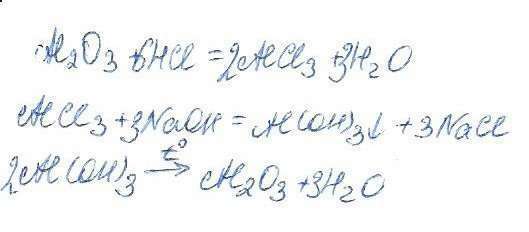 Al₂O₃ + 6HCl = 2AlCl₃ + 3H₂O
AlCl₃ + 3NaOH = Al(OH)₃↓ + 3NaCl
2Al(OH)₃ t°→ Al₂O₃ + 3H₂O